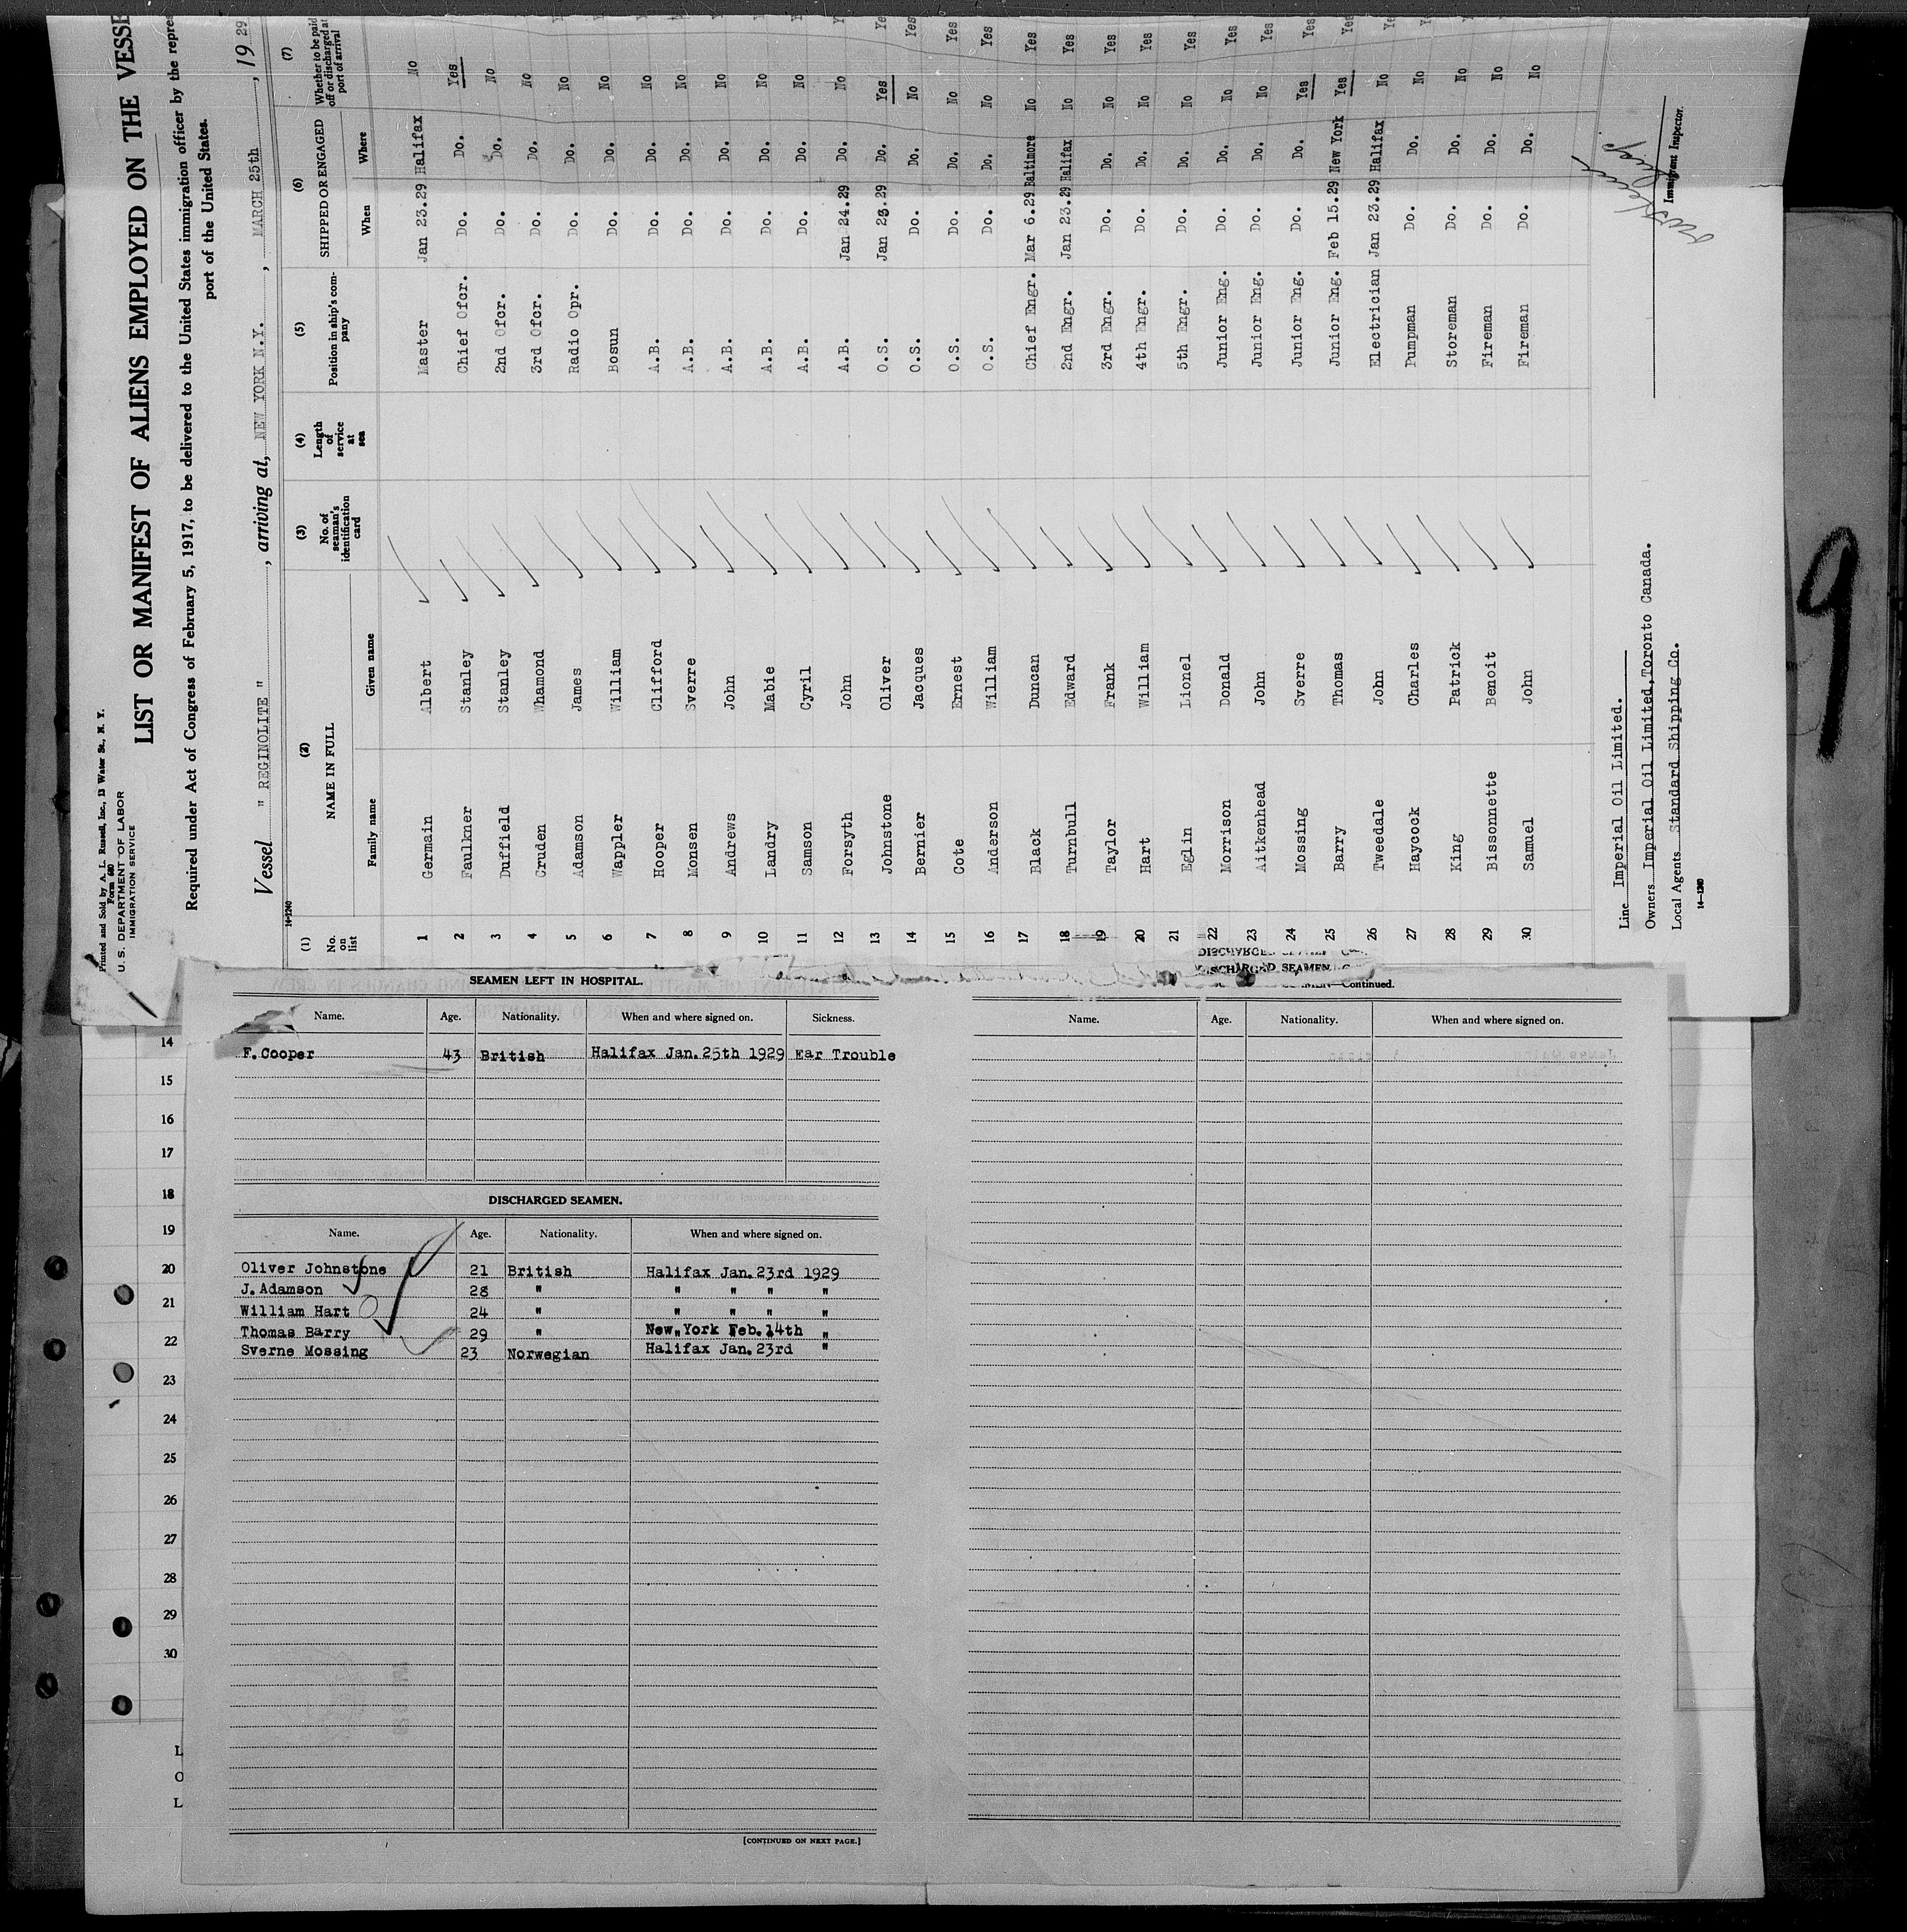 Printed and Sold by A. L. Russell, Inc., 13 Water St., N. Y.
Form 680
U. S. DEPARTMENT OF LABOR
IMMIGRATION SERVICE
LIST OR MANIFEST OF ALIENS EMPLOYED ON THE VESSE
Required under Act of Congress of February 5, 1917, to be delivered to the United States immigration officer by the repres
port of the United States.
Vessel " REGINOLITE ", arriving at, NEW YORK N.Y. , MARCH 25th , 19 29
14-1240
(1) (2) (3) (4) (5) (6) (7)
No. on list NAME IN FULL No. of seaman's identification card Length of service at sea Position in ship's company SHIPPED OR ENGAGED Whether to be paid off or discharged at port of arrival
Family name Given name When Where
1 Germain Albert Master Jan 23.29 Halifax No
2 Faulkner Stanley Chief Ofcr. Do. Do. Yes
3 Duffield Stanley 2nd Ofcr. Do. Do. No
4 Cruden Whamond 3rd Ofcr. Do. Do. No
5 Adamson James Radio Opr. Do. Do. No
6 Wappler William Bosun Do. Do. No
7 Hooper Clifford A.B. Do. Do. No
8 Monsen Sverre A.B. Do. Do. No
9 Andrews John A.B. Do. Do. No
10 Landry Mabie A.B. Do. Do. No
11 Samson Cyril A.B. Do. Do. No
12 Forsyth John A.B. Jan 24.29 Do. No
13 Johnstone Oliver O.S. Jan 23.29 Do. Yes Yes
14 Bernier Jacques O.S. Do. Do. No Yes
15 Cote Ernest O.S. Do. Do. No Yes
16 Anderson William O.S. Do. Do. No Yes
17 Black Duncan Chief Engr. Mar 6.29 Baltimore No Yes
18 Turnbull Edward 2nd Engr. Jan 23.29 Halifax No Yes
19 Taylor Frank 3rd Engr. Do. Do. No Yes
20 Hart William 4th Engr. Do. Do. No Yes
21 Eglin Lionel 5th Engr. Do. Do. No Yes
22 Morrison Donald Junior Eng. Do. Do. No Yes
23 Aitkenhead John Junior Eng. Do. Do. No Yes
24 Mossing Sverre Junior Eng. Do. Do. Yes Yes
25 Barry Thomas Junior Eng. Feb 15.29 New York Yes Yes
26 Tweedale John Electrician Jan 23.29 Halifax No
27 Haycock Charles Pumpman Do. Do. No
28 King Patrick Storeman Do. Do. No
29 Bissonnette Benoit Fireman Do. Do. No
30 Samuel John Fireman Do. Do. No
Line Imperial Oil Limited.
Owners Imperial Oil Limited,Toronto Canada.
Local Agents Standard Shipping Co.
Immigrant Inspector.
14-1240
9
SEAMEN LEFT IN HOSPITAL.
Name. Age. Nationality. When and where signed on. Sickness.
F. Cooper 43 British Halifax Jan. 25th 1929 Ear Trouble
DISCHARGED SEAMEN.
Name. Age. Nationality. When and where signed on.
Oliver Johnstone 21 British Halifax Jan. 23rd 1929
J. Adamson 28 " " " " "
William Hart 24 " " " " "
Thomas Barry 29 " New York Feb. 14th "
Sverne Mossing 23 Norwegian Halifax Jan. 23rd "
[CONTINUED ON NEXT PAGE.]
DISCHARGED SEAMEN
Continued.
Name. Age. Nationality. When and where signed on.
14
15
16
17
18
19
20
21
22
23
24
25
26
27
28
29
30
L
O
L